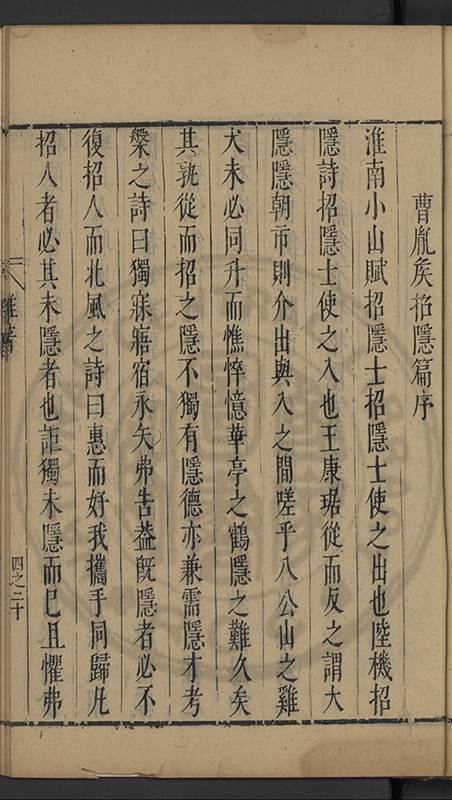 曹胤矦招隱篇序
淮南小山賦招隱士招隱士使之出也陸機招
隱詩招隱士使之入也王康琚從而反之謂大
隱隱朝市則介出與入之間嗟乎八公山之雞
犬未必同升而憔悴憶華亭之鶴隱之難久矣
其孰從而招之隱不獨有隱德亦兼需隱才考
槃之詩曰獨寐寤宿永矢弗告葢旣隱者必不
復招人而北風之詩曰惠而好我攜手同歸凡
招人者必其未隱者也詎獨未隱而已且懼弗
雜著
四之二十